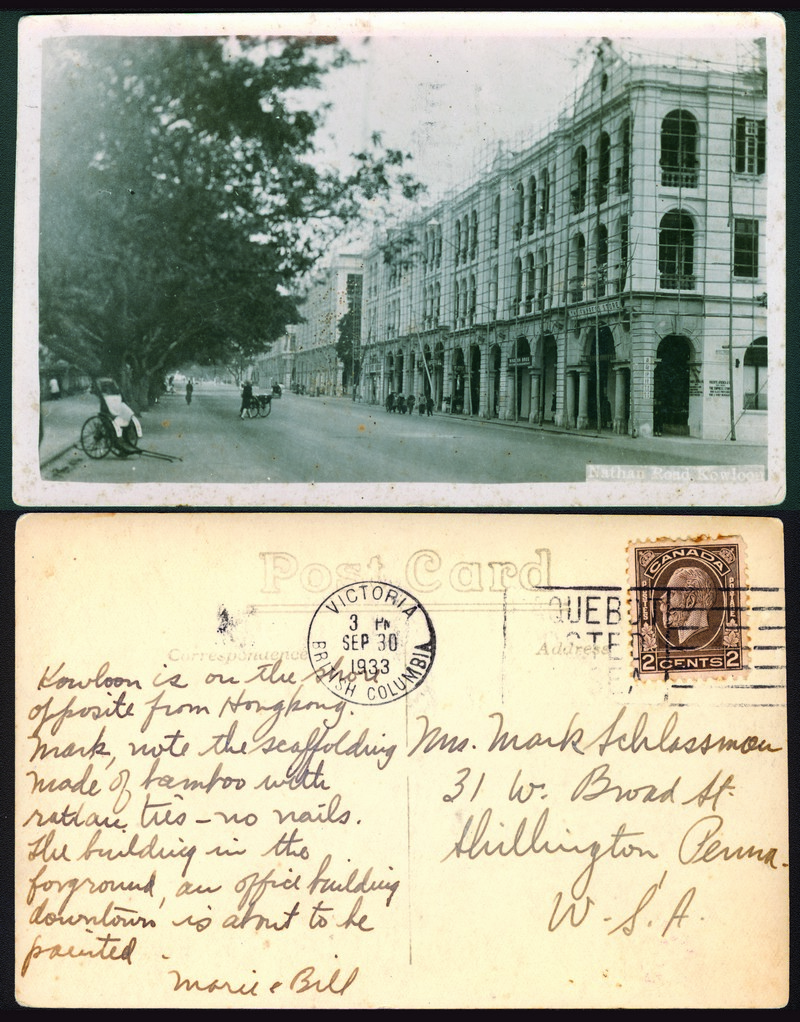 Nathan Road Kowloon
Post Card
Correspondence
Address
VICTORIA
3 PM
SEP 30
1933
BRITISH COLUMBIA
CANADA
2 CENTS 2
Kowloon is on the shore
opposite from Hongkong.
Mark, note the scaffolding
made of bamboo with
rattan ties – no nails.
The building in the
forground, an office building
downtown is about to be
painted.
Marie & Bill
Mrs. Mark Schlossman
31 W. Broad St.
Shillington, Penna.
U.S.A.